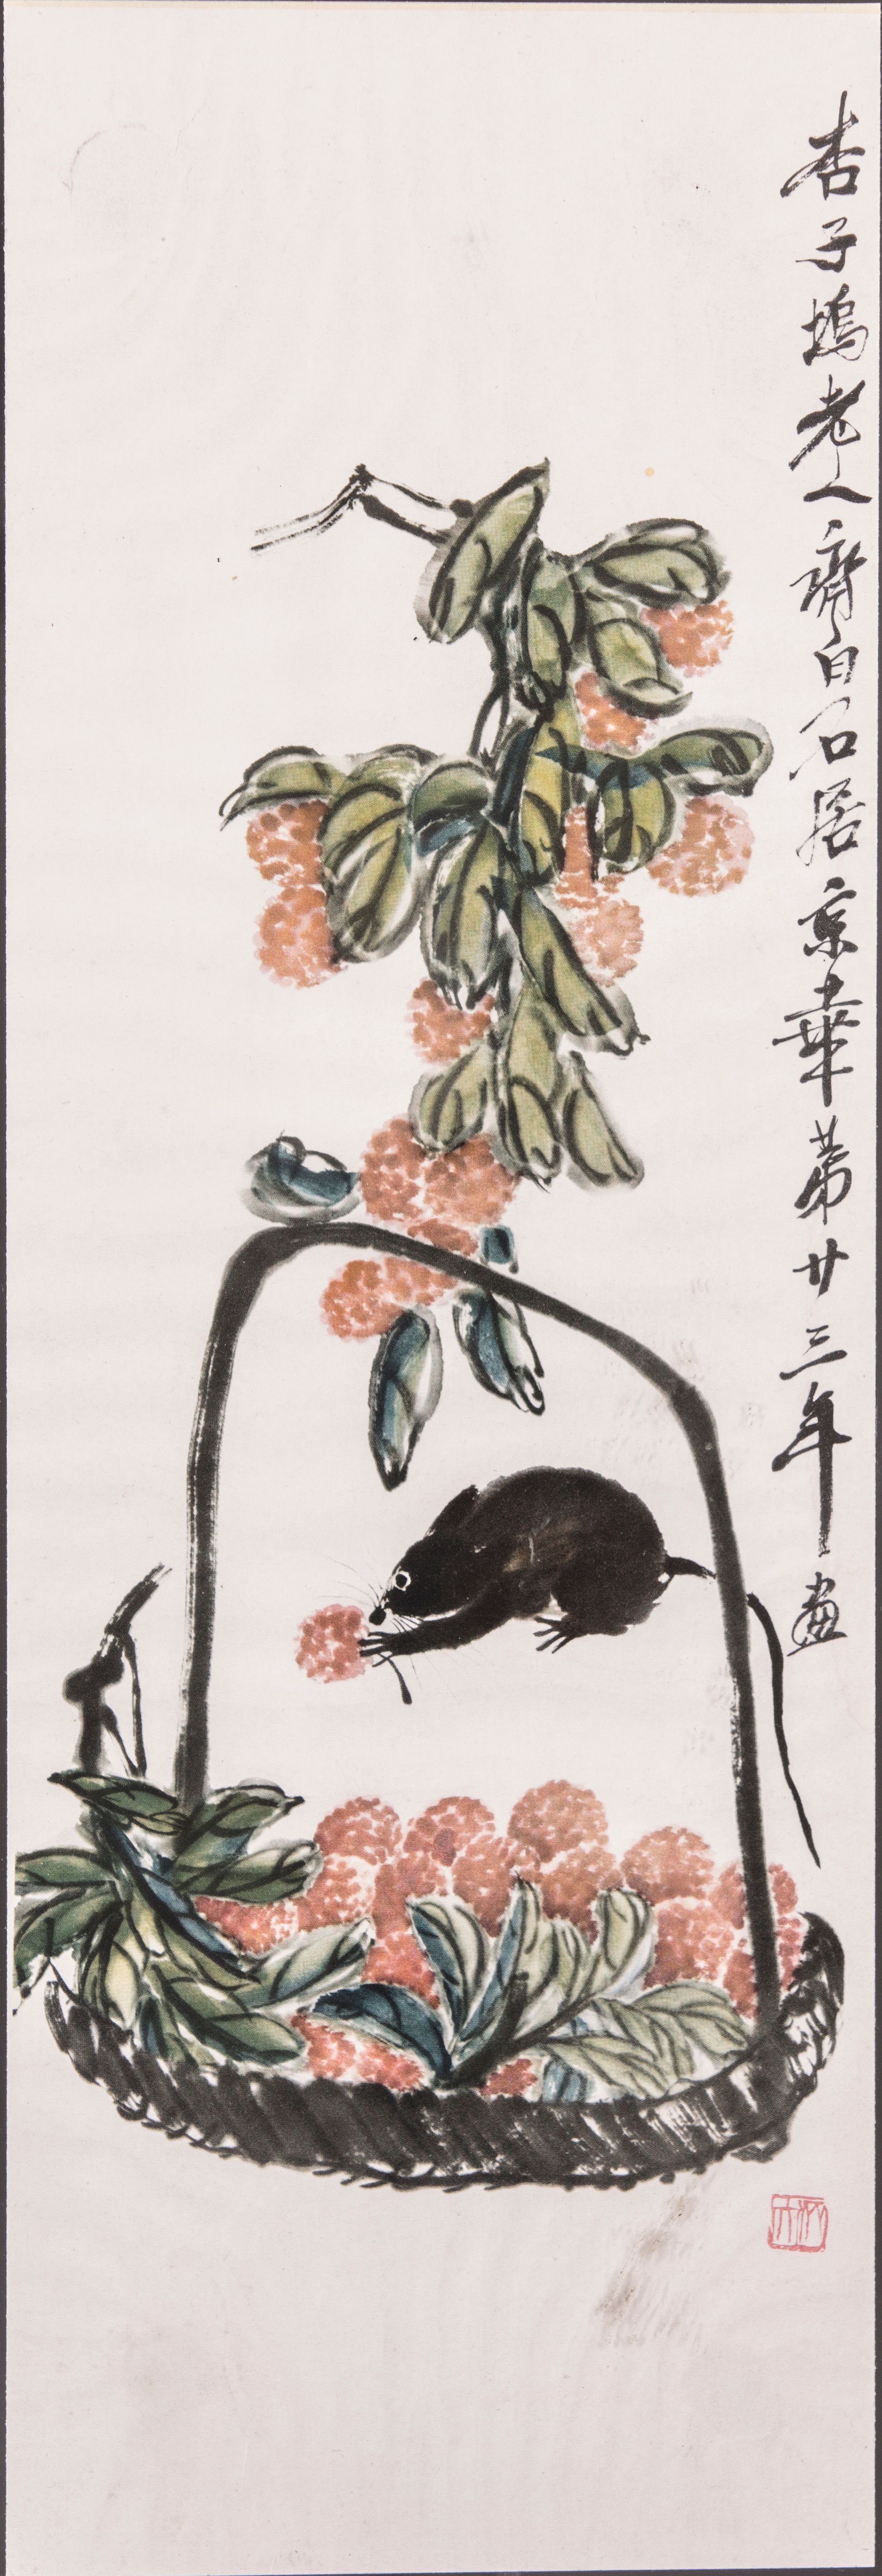 杏子塢老人齊白石居京華第廿三年畫